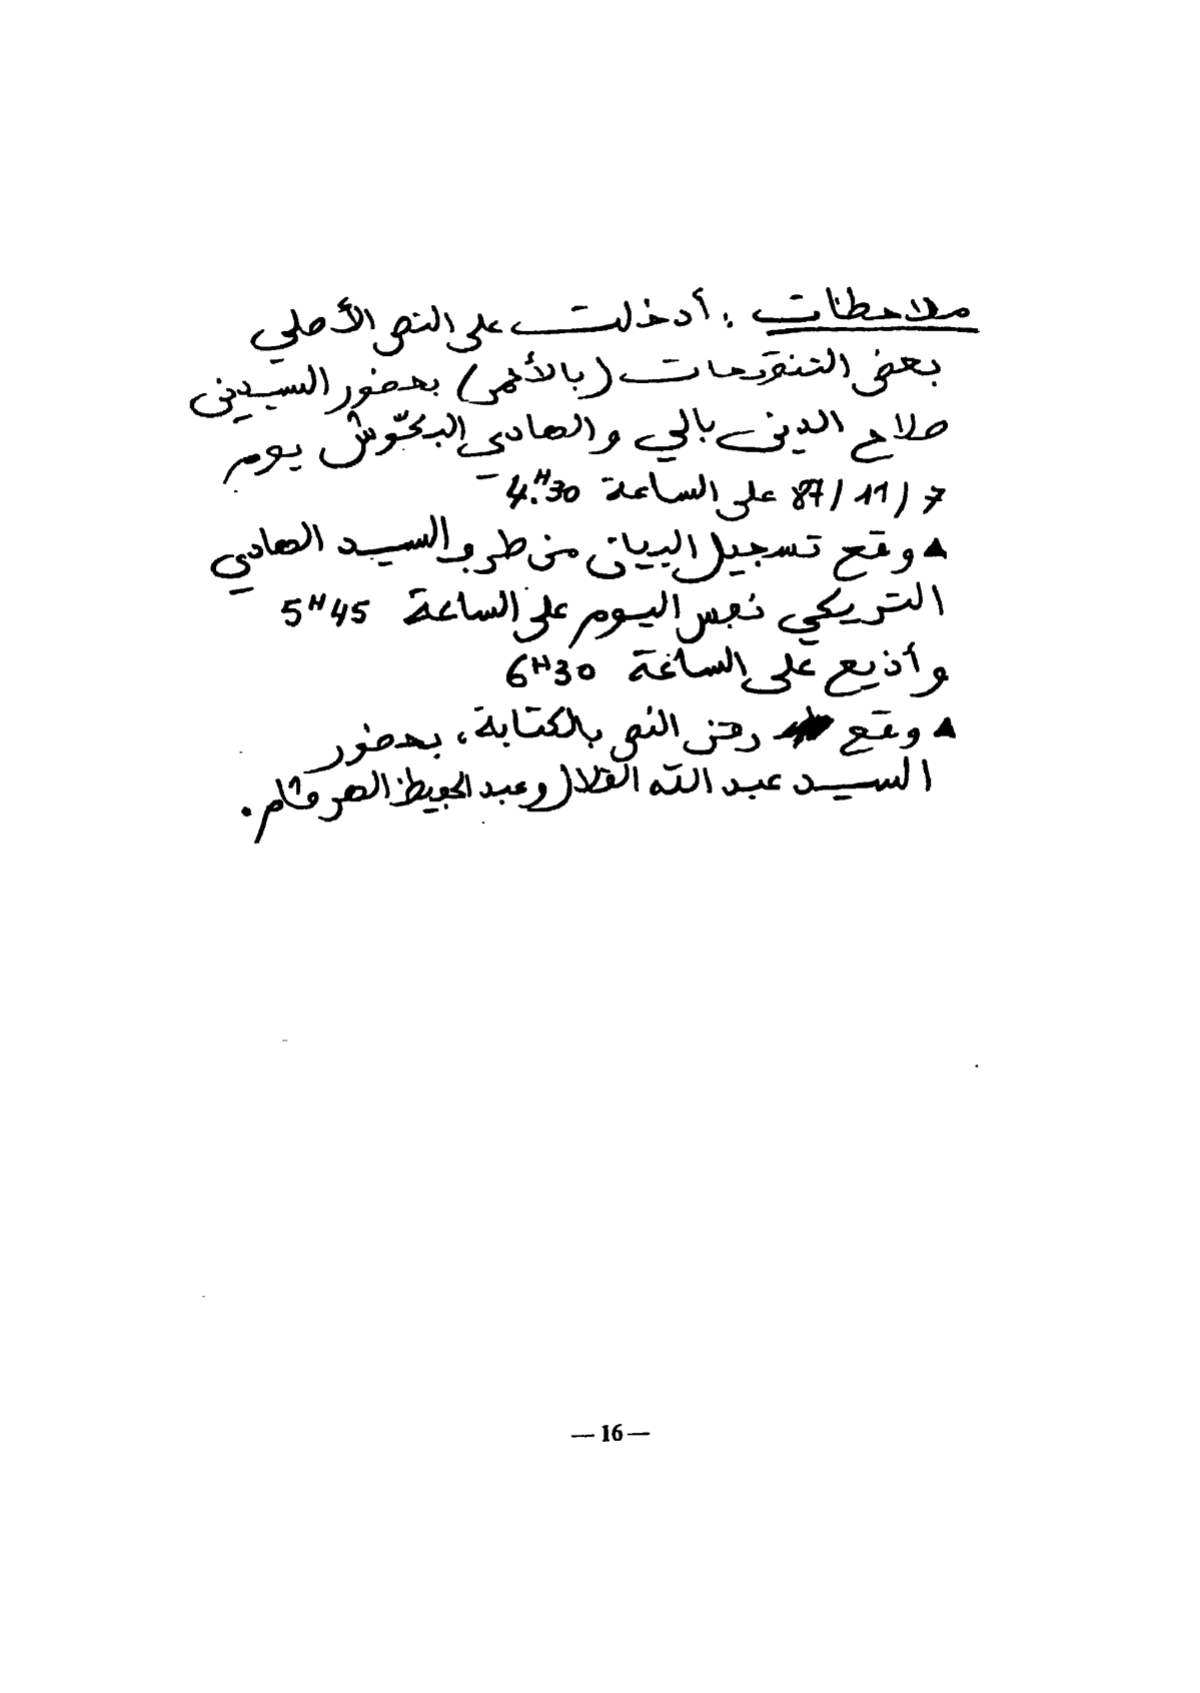 ملاحظات : أدخلت على النص الأصلي
بعض التنقيحات (بالأحمر) بحضور السيدين
صلاح الدين بالي والهادي البكوش يوم
7 / 11 / 87 على الساعة 4.H30
▲ وقع تسجيل البيان من طرف السيد الهادي
التريكي نفس اليوم على الساعة 5H45
وأذيع على الساعة 6H30
▲ وقع رقن النص بالكتابة، بحضور
السيد عبد الله القلال وعبد الحفيظ الهرقام.
— 16 —